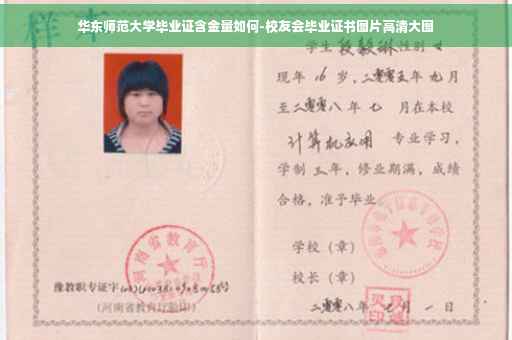 华东师范大学毕业证含金量如何-校友会毕业证书图片高清大图
样本
学生 段毅琳 性别 女
现年 16 岁，二零零五年 九月
至二零零八年 七 月在本校
计算机应用 专业学习，
学制 三年，修业期满，成绩
合格，准予毕业。
学校（章）
校长（章）
河南省教育厅
豫教职专证字
（河南省教育厅验印）
二零零八年 七月 一日